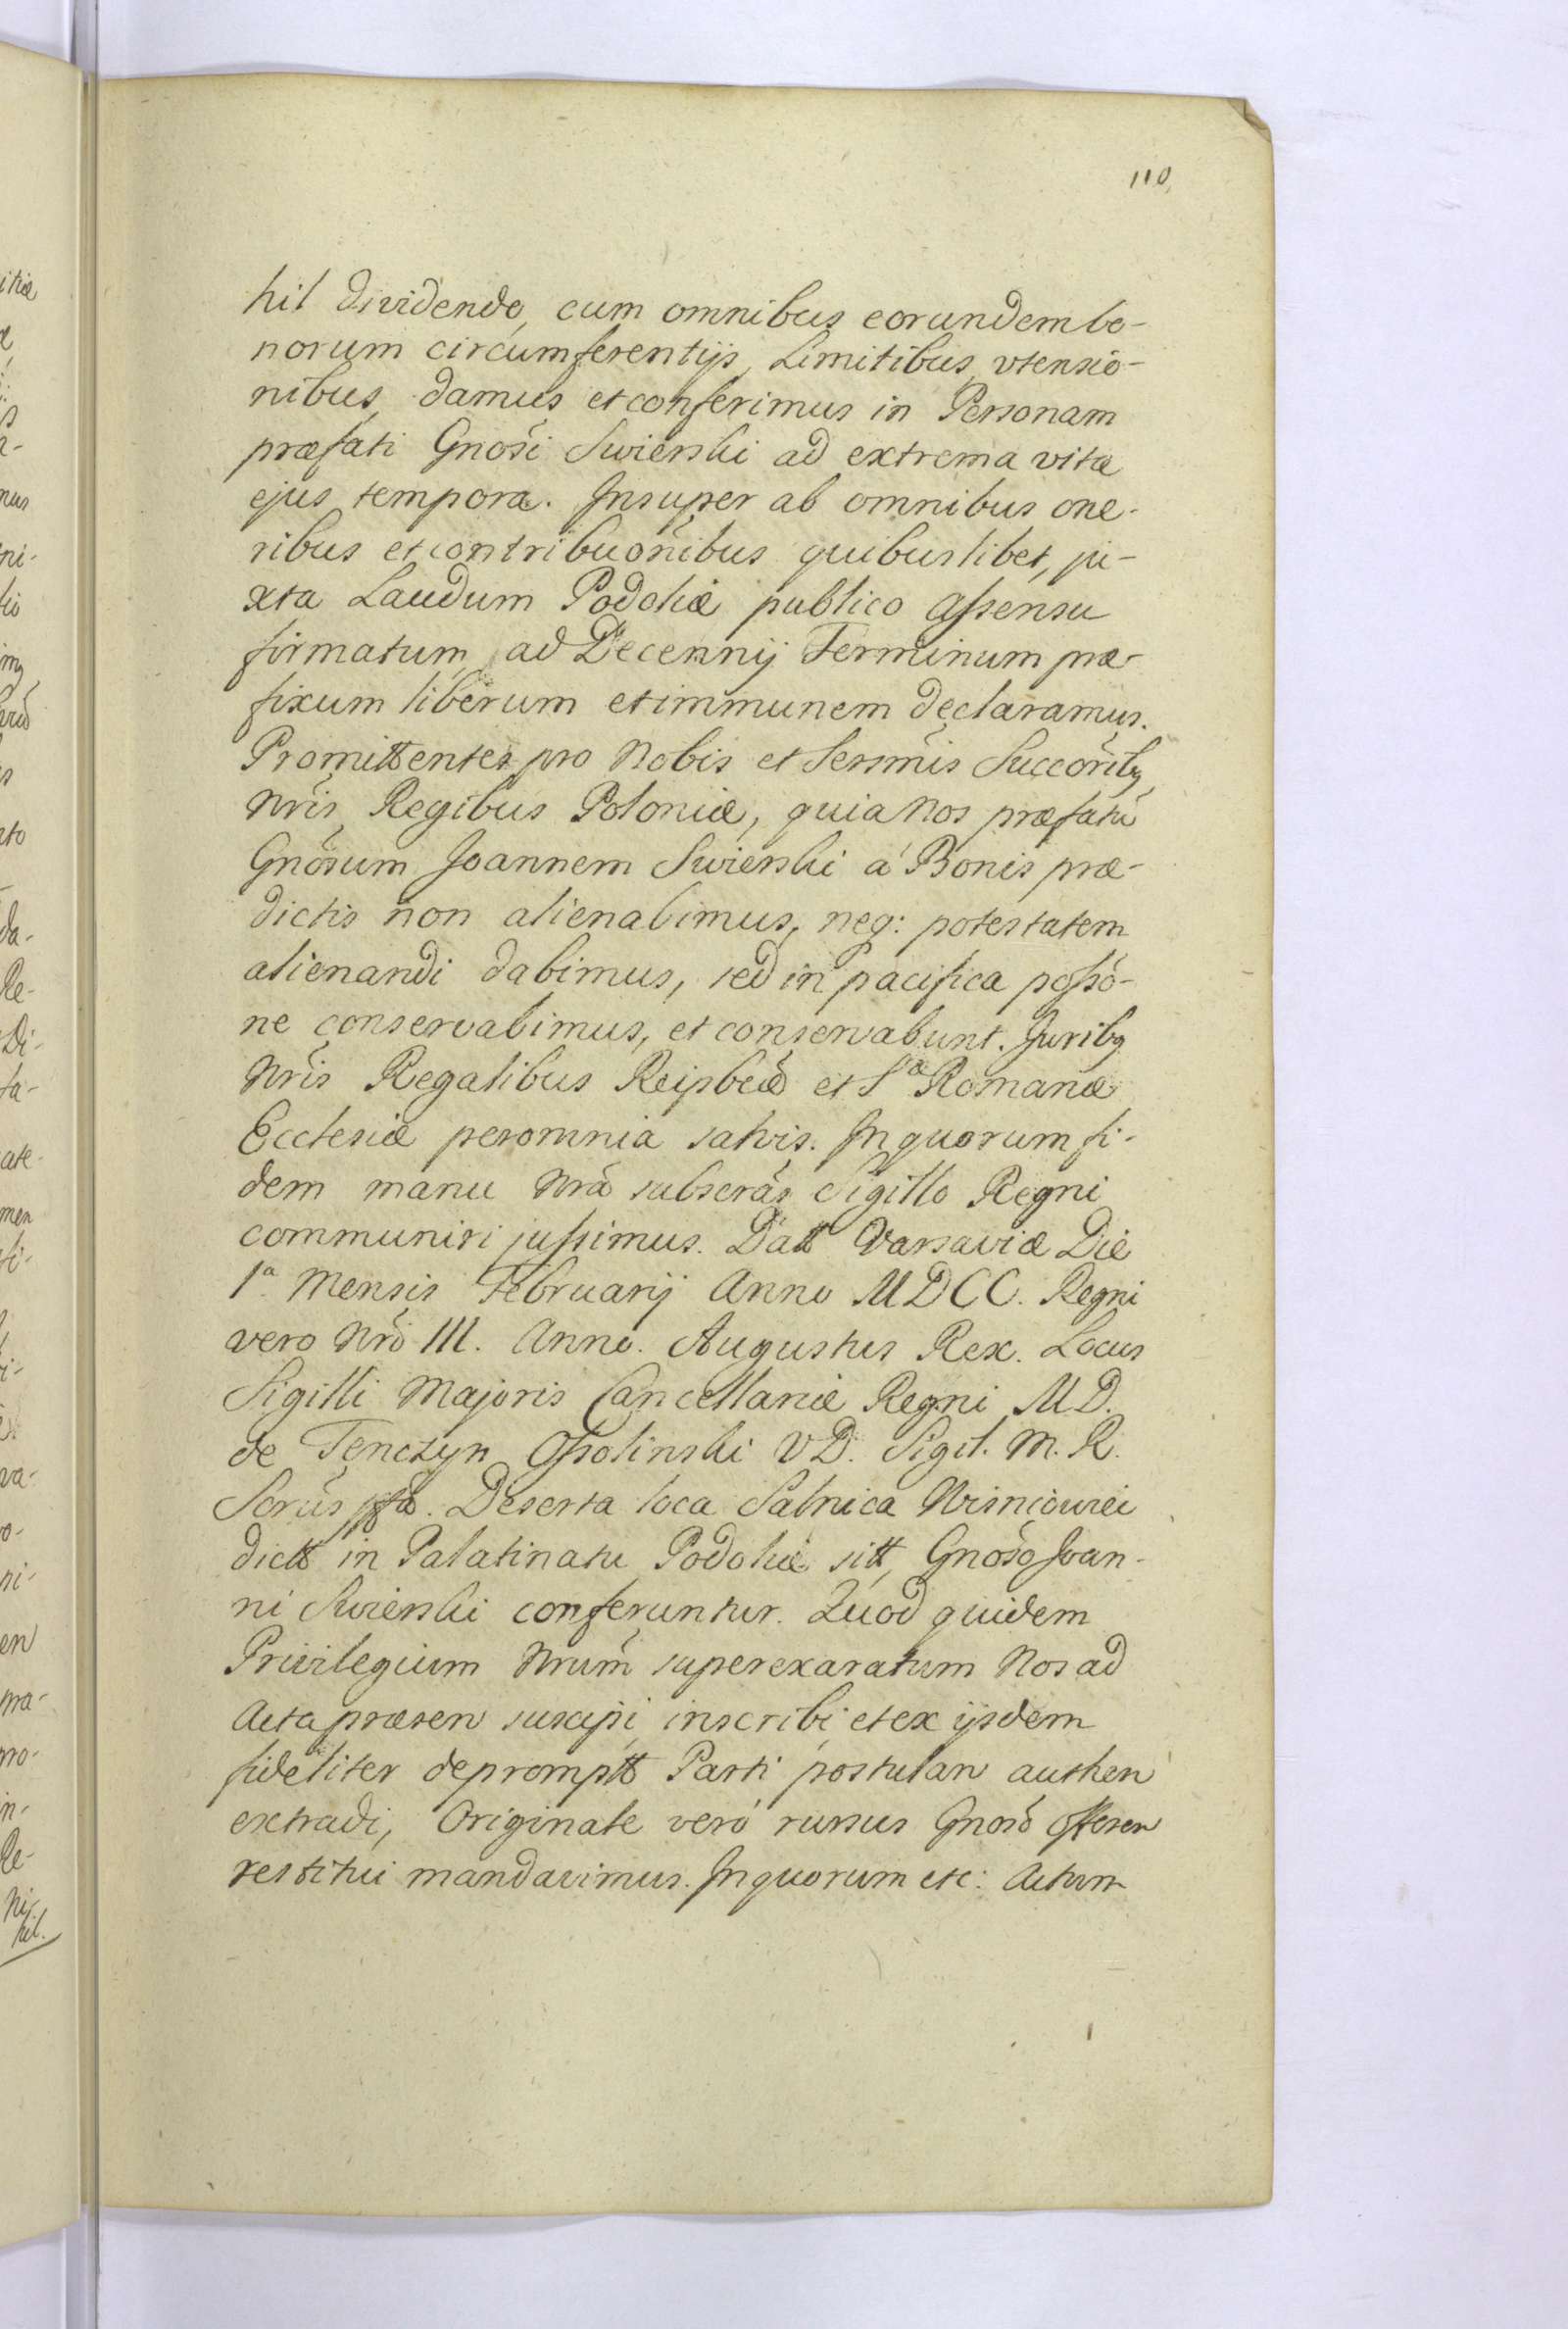 110
hil dividendo, cum omnibus eorundem bo-
norum circumferentijs, Limitibus, vtensio-
nibus, damus et conferimus in Personam
præfati Gnosi Swierski ad extrema vitæ
ejus tempora. Insuper ab omnibus one-
ribus et contribuonibus quibuslibet, ju-
xta Laudum Podoliæ publico assensu
firmatum, ad Decennij Terminum præ-
fixum liberum et immunem declaramus.
Promittentes pro Nobis et Sersmis Succoribq
Nris Regibus Poloniæ, quia Nos præfatū
Gnosum Joannem Swierski á Bonis præ-
dictis non alienabimus, neq: potestatem
alienandi dabimus, sed in pacifica posso-
ne conservabimus, et conservabunt. Juribq
Nris Regalibus Reipbcæ et Sæ Romanæ
Ecclesiæ per omnia salvis. In quorum fi-
dem manu Nrã subscrãs Sigillo Regni
communiri jussimus. Datt Varsaviæ Die
1ª Mensis Februarij Anno MDCC. Regni
vero Nri III. Anno. Augustus Rex. Locus
Sigilli Majoris Cancellariæ Regni M D.
de Tenczyn Ossolinski V D. Sigil. M. R.
Deserta loca Salnica Wisniowiei
dictt in Palatinatu Podoliæ sitt, Gnoso Joan-
ni Swierski conferuntur. Quod quidem
Privilegium Nrum superexaratum Nos ad
Acta præsen suscipi, inscribi et ex ijsdem
fideliter depromptt Parti postulan authen
extradi, Originale veró rursus Gnoso Offeren
restitui mandavimus. In quorum etc: Actum
itiæ
mus
ni-
da-
Re-
Di-
ta-
ate-
men
va-
ni-
en
Re-
Ni-
hil.